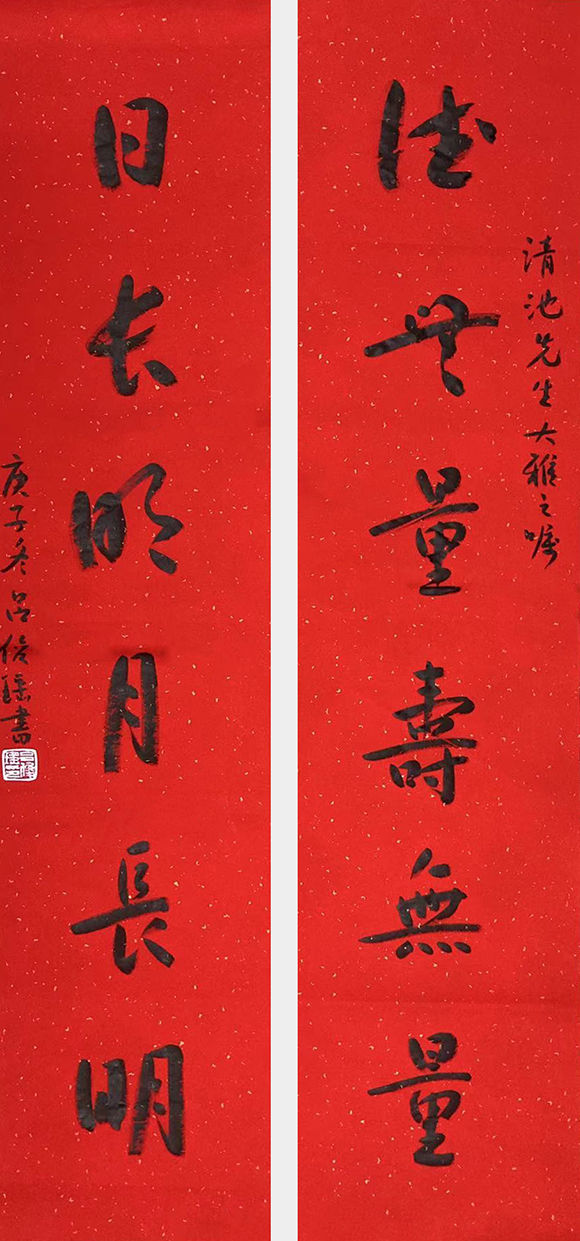 德無量壽無量
清池先生大雅之嘱
日长明月長明
庚子冬吕俊書